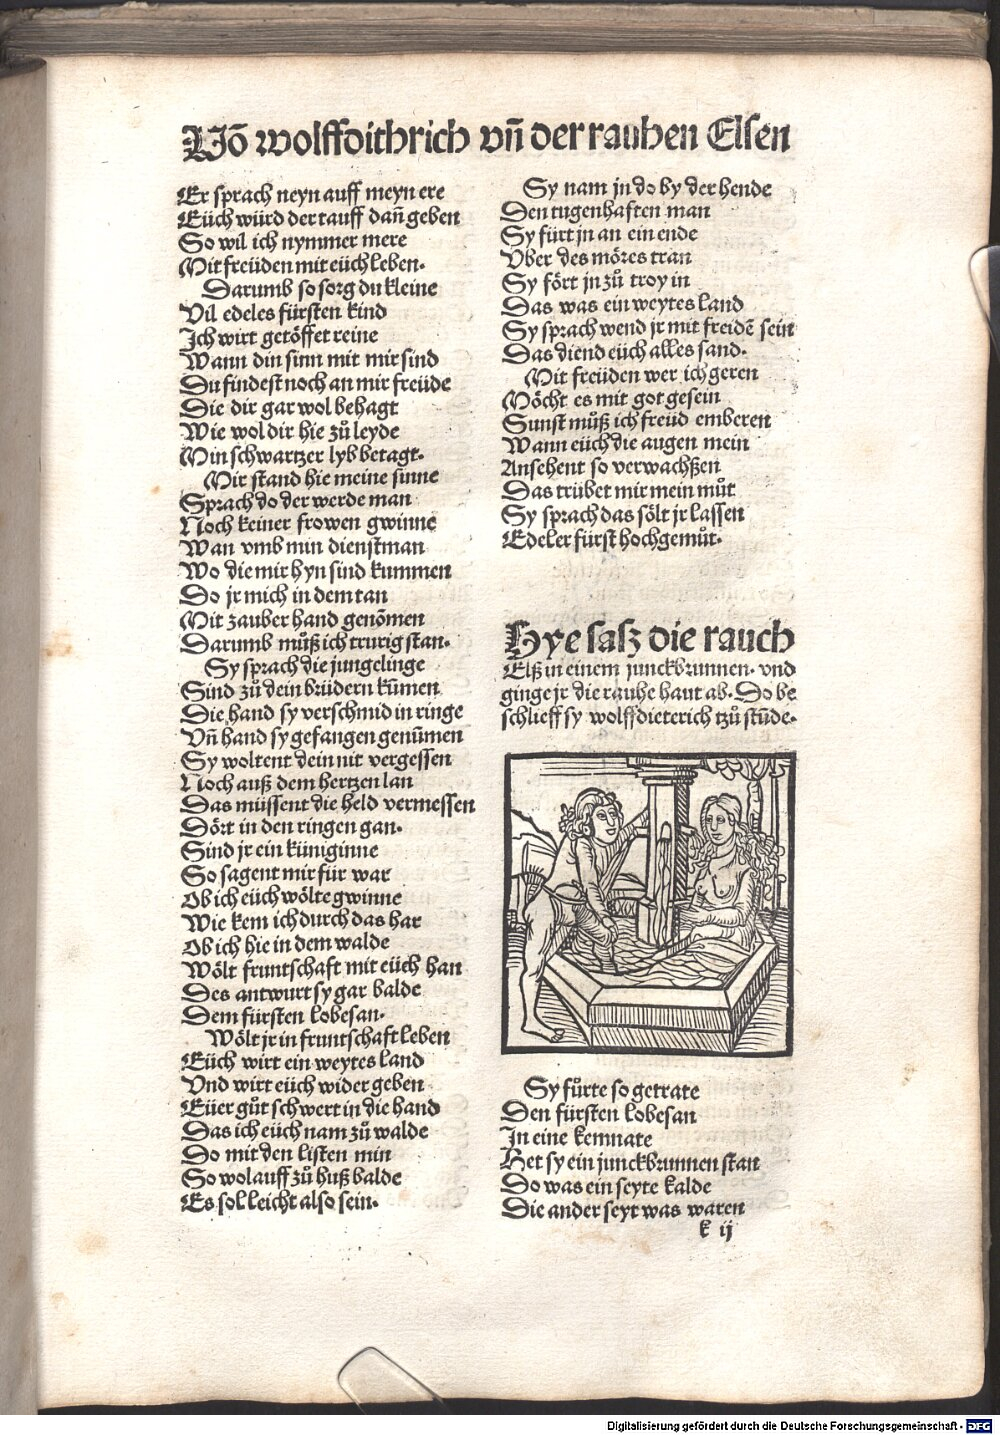 Võ wolffdithrich vñ der rauhen Elsen
Er sprach neyn auff meyn ere
Eüch würd der tauff dañ geben
So wil ich nymmer mere
Mit freüden mit eüch leben.
Darumb so sorg du kleine
Vil edeles fürsten kind
Ich wirt getöffet reine
Wann din sinn mit mir sind
Du findest noch an mir freüde
Die dir gar wol behagt
Wie wol dir hie zů leyde
Min schwartzer lyb betagt.
Mir stand hie meine sinne
Sprach do der werde man
Noch keiner frowen gwinne
Wan vmb min dienstman
Wo die mir hyn sind kummen
Do jr mich in dem tan
Mit zauber hand genõmen
Darumb můß ich trurig stan.
Sy sprach die jungelinge
Sind zů dein brüdern kũmen
Die hand sy verschmid in ringe
Vñ hand sy gefangen genũmen
Sy woltent dein nit vergessen
Noch auß dem hertzen lan
Das müssent die held vermessen
Dört in den ringen gan.
Sind jr ein küniginne
So sagent mir für war
Ob ich eüch wölte gwinne
Wie kem ich durch das har
Ob ich hie in dem walde
Wölt fruntschaft mit eüch han
Des antwurt sy gar balde
Dem fürsten lobesan.
Wölt jr in fruntschaft leben
Eüch wirt ein weytes land
Vnd wirt eüch wider geben
Eüer gůt schwert in die hand
Das ich eüch nam zů walde
Do mit den listen min
So wolauff zů huß balde
Es sol leicht also sein.
Sy nam jn do by der hende
Den tugenhaften man
Sy fürt jn an ein ende
Vber des möres tran
Sy fört jn zů troy in
Das was ein weytes land
Sy sprach wend jr mit freidẽ sein
Das diend eüch alles sand.
Mit freüden wer ich geren
Möcht es mit got gesein
Sunst můß ich freüd emberen
Wann eüch die augen mein
Ansehent so verwachßen
Das trübet mir mein můt
Sy sprach das sölt jr lassen
Edeler fürst hochgemůt.
Hye sasz die rauch
Elß in einem junckbrunnen. vnd
ginge jr die rauhe haut ab. Do be
schlieff sy wolffdieterich tzů stũde.
Sy fůrte so getrate
Den fürsten lobesan
In eine kemnate
Het sy ein junckbrunnen stan
Do was ein seyte kalde
Die ander seyt was waren
k ij
Digitalisierung gefördert durch die Deutsche Forschungsgemeinschaft - DFG